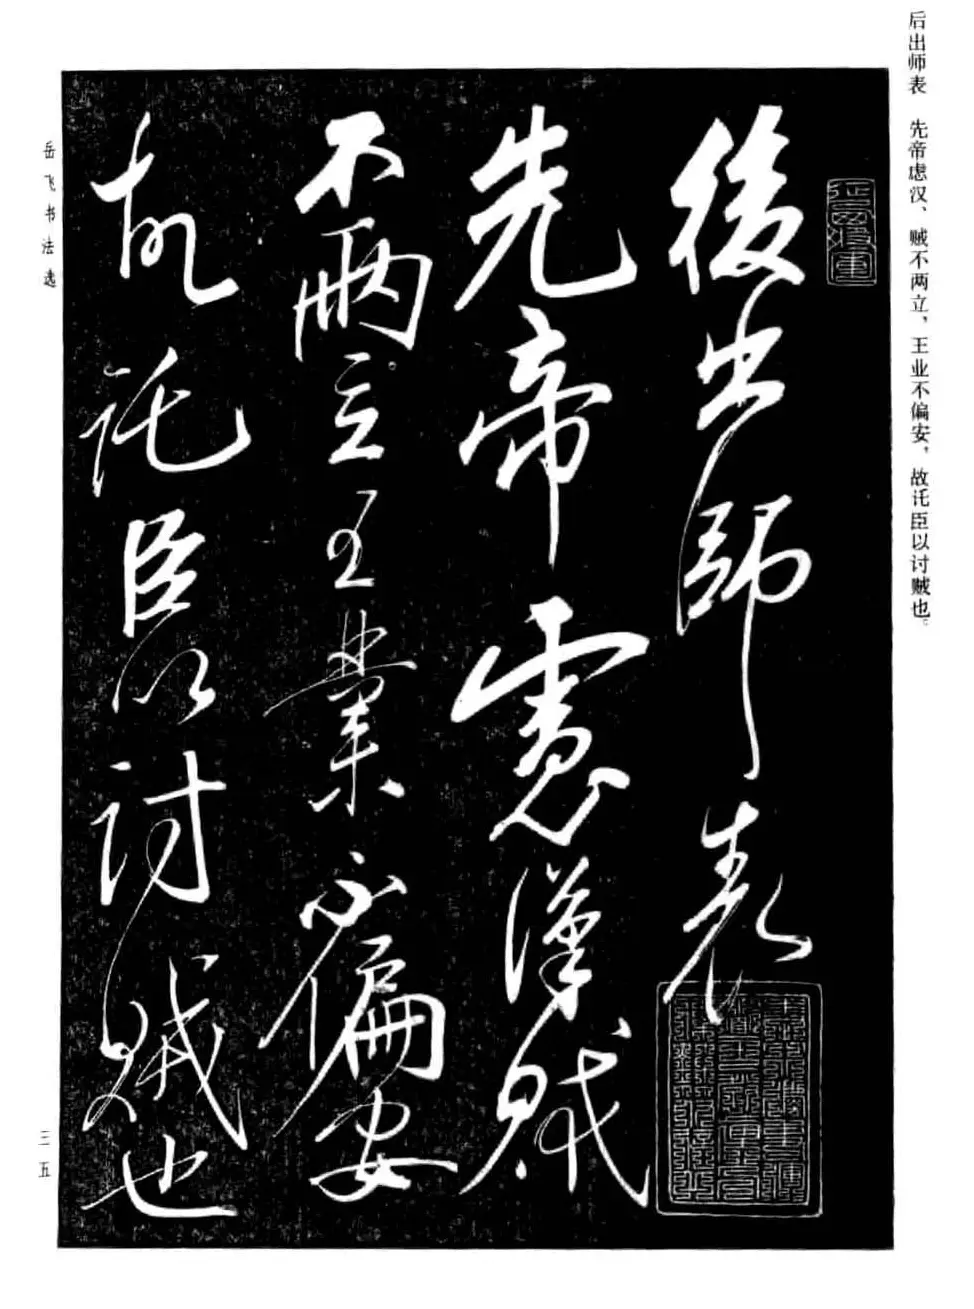 后出师表　先帝虑汉、贼不两立，王业不偏安，故讬臣以讨贼也。
後出師表
先帝慮漢賊
不兩立王業不偏安
故託臣以討賊也
岳飞书法选
三五